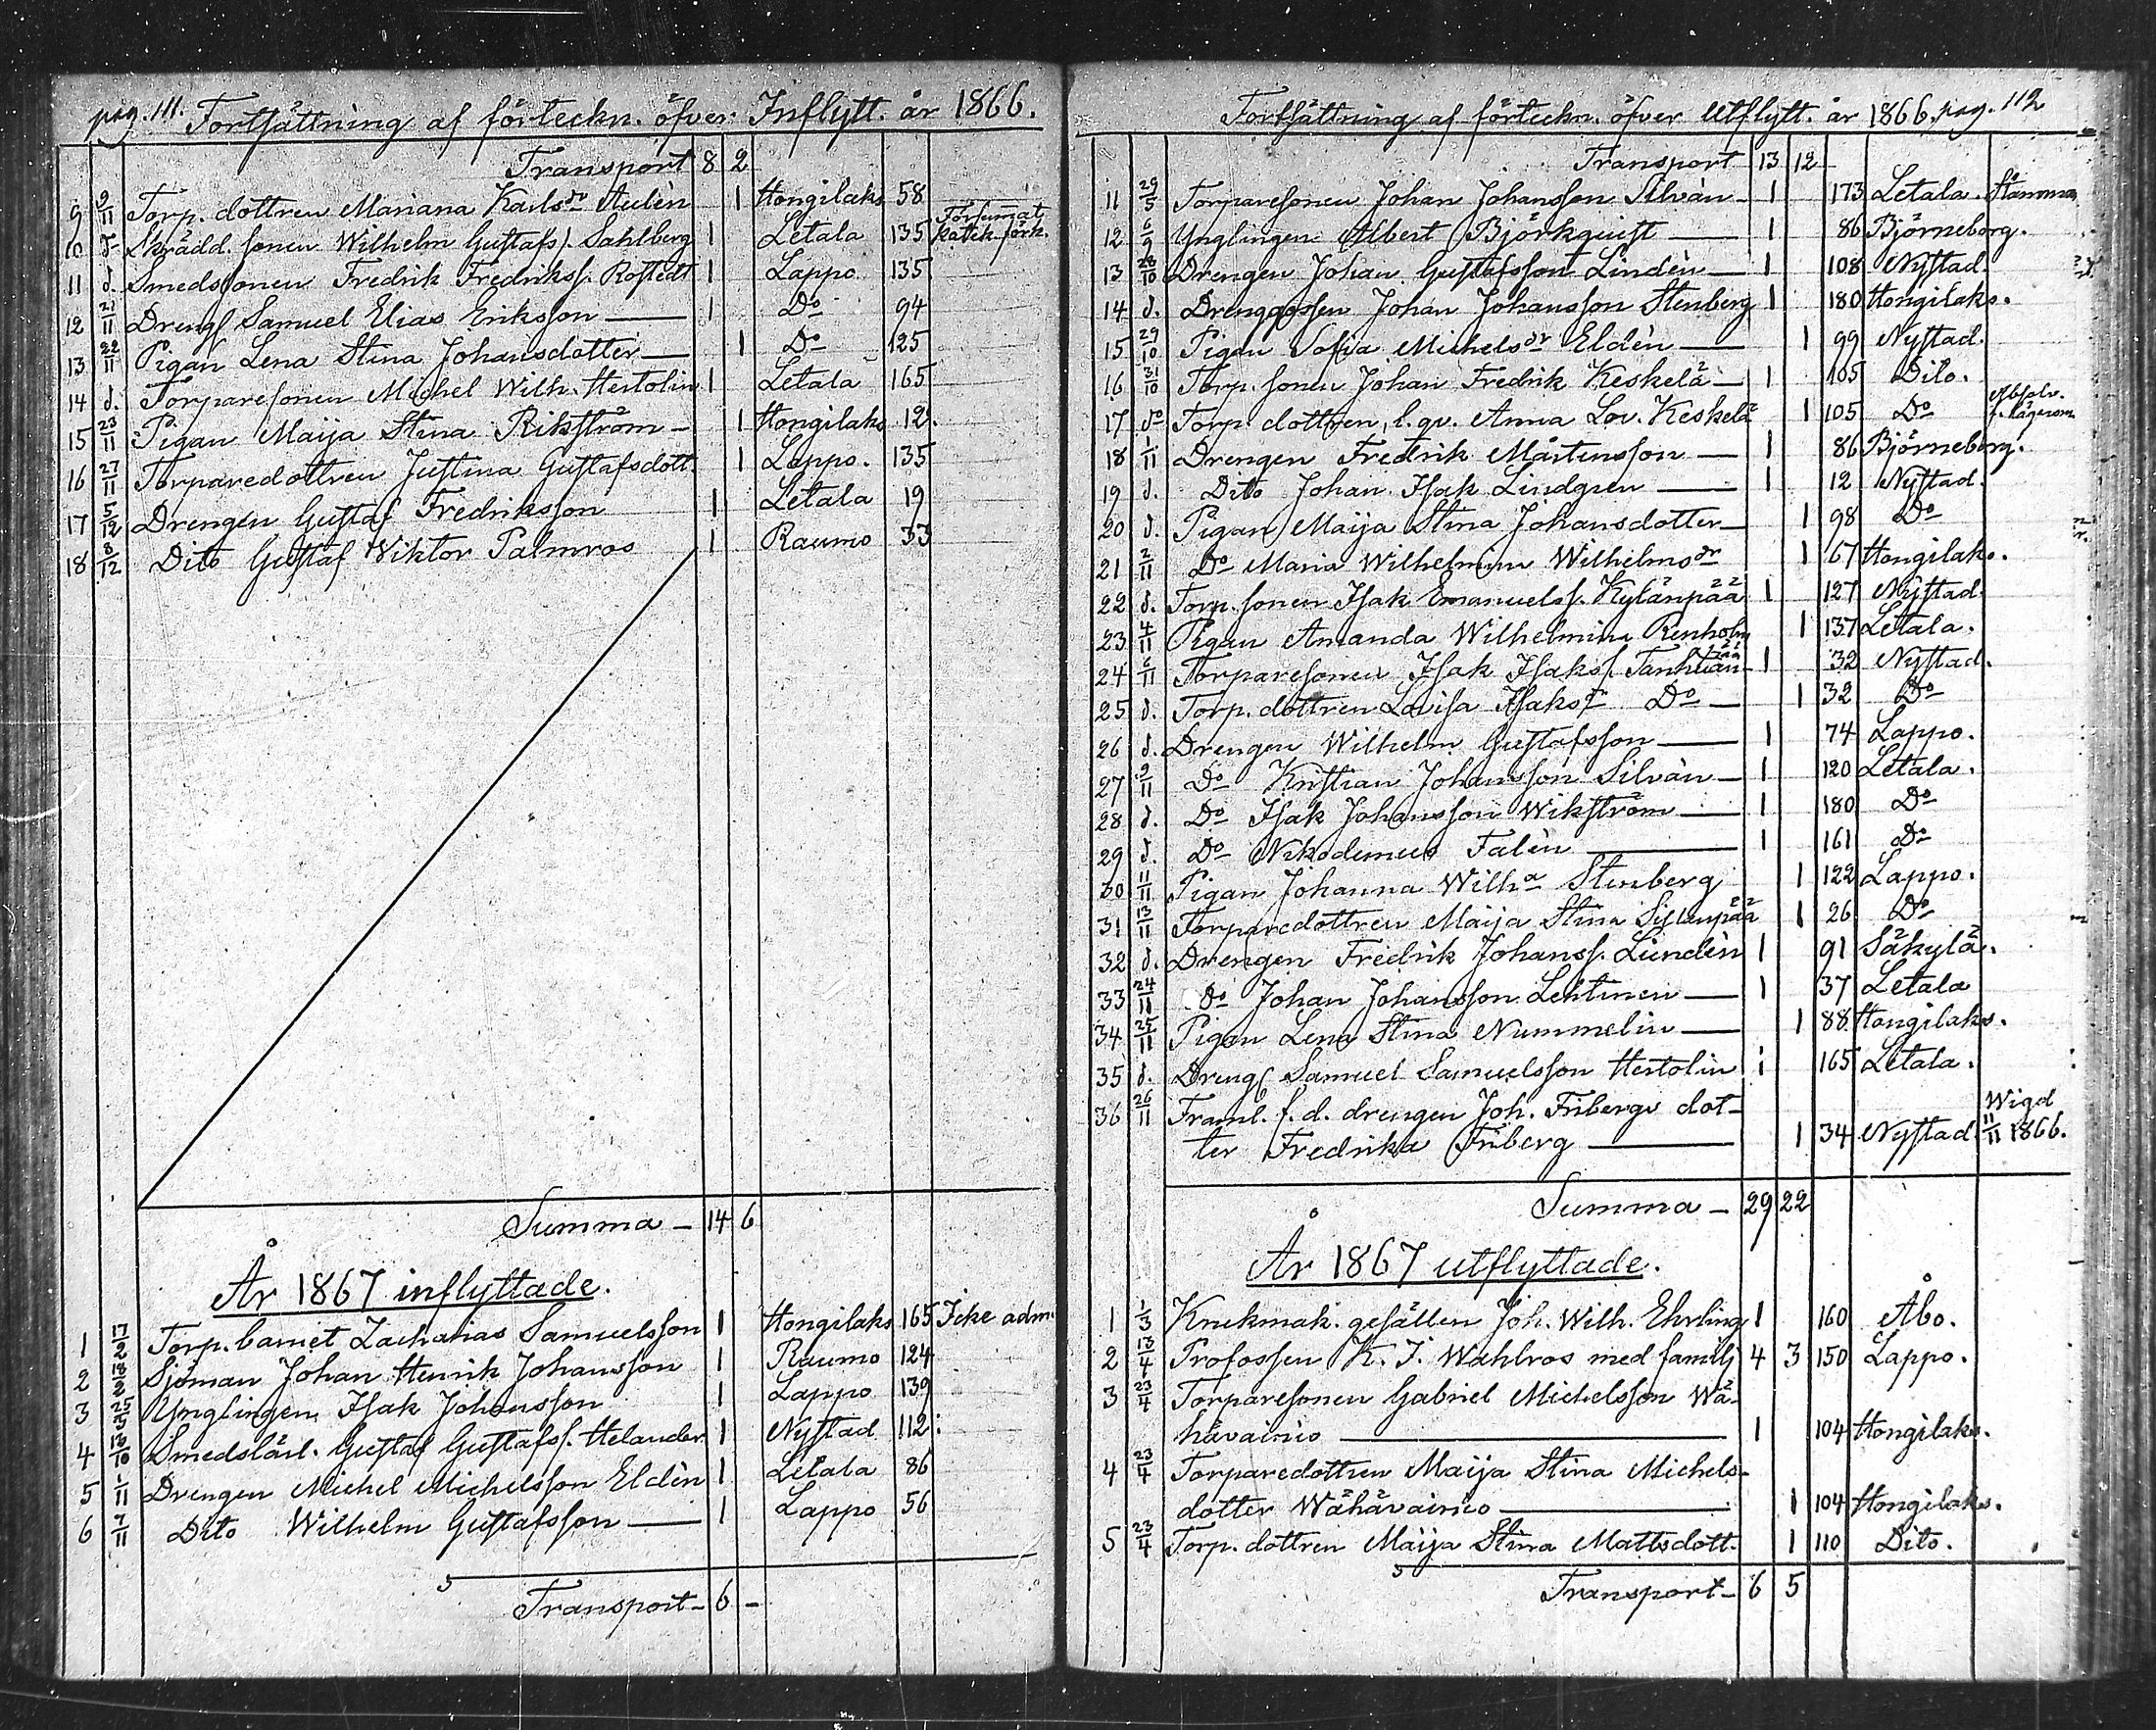 pag. 111. Fortsättning af förteckn. öfver Inflytt. år 1866.
Transport 8 2
9 9/11 Torp. dottren Mariana Karlsdr Aulèn 1 Hongilaks 58
10 d- Skrädd. sonen Wilhelm Gustafss. Sahlberg 1 Letala 135 Försumat katek. förh.
11 d. Smedssonen Fredrik Fredrikss. Rostedt 1 Lappo 135
12 21/11 Drengs Samuel Elias Eriksson 1 Do 94
13 22/11 Pigan Lena Stina Johansdotter 1 Do 125
14 d. Torparesonen Michel Wilh. Hertolin 1 Letala 165
15 23/11 Pigan Maija Stina Rikström 1 Hongilaks 12.
16 27/11 Torparedottren Justina Gustafsdott. 1 Lappo. 135
17 5/12 Drengen Gustaf Fredriksson 1 Letala 19
18 8/12 Dito Gustaf Wiktor Palmros 1 Raumo 33
Summa - 14 6
År 1867 inflyttade.
1 17/2 Torp. barnet Zacharias Samuelsson 1 Hongilaks 165 Icke adm.
2 18/2 Sjöman Johan Henrik Johansson 1 Raumo 124
3 25/5 Ynglingen Isak Johansson 1 Lappo 139
4 13/10 Smedslärl. Gustaf Gustafss. Helander 1 Nystad 112
5 1/11 Drengen Michel Michelsson Eldèn 1 Letala 86
6 7/11 Dito Wilhelm Gustafsson 1 Lappo 56
Transport - 6 -
Fortsättning af förteckn. öfver Utflytt. år 1866, pag. 112
Transport 13 12
11 29/5 Torparesonen Johan Johansson Silvàn 1 173 Letala. Stämma
12 6/9 Ynglingen Albert Björkquist 1 86 Björneborg.
13 28/10 Drengen Johan Gustafsson Lindèn 1 108 Nystad.
14 d. Drenggossen Johan Johansson Stenberg 1 180 Hongilaks.
15 29/10 Pigan Sofia Michelsdr Eldèn 1 99 Nystad.
16 31/10 Torp. sonen Johan Fredrik Keskelä 1 105 Dito.
17 do Torp. dottren, l. qv. Anna Lov. Keskelä 1 105 Do Absolv. f. lägersm
18 1/11 Drengen Fredrik Mårtensson 1 86 Björneborg.
19 d. Dito Johan Isak Lindgren 1 12 Nystad.
20 d. Pigan Maija Stina Johansdotter 1 98 Do
21 2/11 Do Maria Wilhelmina Wilhelmsdr 1 67 Hongilaks.
22 d. Torp. sonen Isak Emanuelss. Kylänpää 1 127 Nystad.
23 4/11 Pigan Amanda Wilhelmina Renholm 1 137 Letala.
24 6/11 Torparesonen Isak Isakss. Tanhuan 1 32 Nystad.
25 d. Torp. dottren Lovisa Isaksdr Do 1 32 Do
26 d. Drengen Wilhelm Gustafsson 1 74 Lappo.
27 9/11 Do Kristian Johansson Silvàn 1 120 Letala.
28 d. Do Isak Johansson Wikström 1 180 Do
29 d. Do Nikodemus Falèn 1 161 Do
30 11/11 Pigan Johanna Wilha Stenberg 1 122 Lappo.
31 13/11 Torparedottren Maija Stina Sillanpää 1 26 Do
32 d. Drengen Fredrik Johanss. Lundèn 1 91 Säkylä.
33 24/11 Do Johan Johansson Lehtinen 1 37 Letala
34 25/11 Pigan Lena Stina Nummelin 1 88 Hongilaks.
35 d. Drengs Samuel Samuelsson Hertolin 1 165 Letala.
36 26/11 Framl. f. d. drengen Joh. Fribergs dot-
ter Fredrika Friberg 1 34 Nystad. Wigd 11/11 1866.
Summa - 29 22
År 1867 utflyttade.
1 1/3 Krukmak. gesällen Joh. Wilh. Ehrling 1 160 Åbo.
2 13/4 Profossen K. J. Wahlros med familj 4 3 150 Lappo.
3 23/4 Torparesonen Gabriel Michelsson Wä-
hävainio 1 104 Hongilaks.
4 23/4 Torparedottren Maija Stina Michels-
dotter Wähävainio 1 104 Hongilaks.
5 23/4 Torp. dottren Maija Stina Mattsdott. 1 110 Dito.
Transport - 6 5